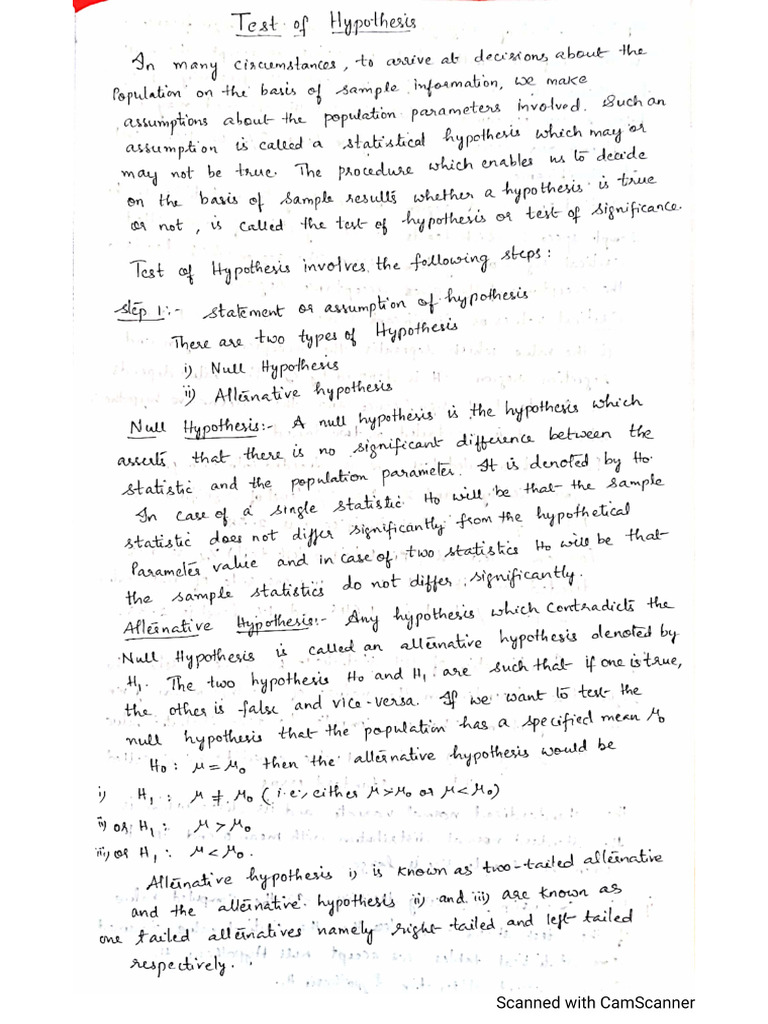 Test of Hypothesis
In many circumstances, to arrive at decisions about the
Population on the basis of sample information, we make
assumptions about the population parameters involved. Such an
assumption is called a statistical hypothesis which may or
may not be true. The procedure which enables us to decide
on the basis of sample results whether a hypothesis is true
or not, is called the test of hypothesis or test of significance.
Test of Hypothesis involves the following steps:
Step 1:- statement or assumption of hypothesis
There are two types of Hypothesis
i) Null Hypothesis
ii) Alternative hypothesis
Null Hypothesis:- A null hypothesis is the hypothesis which
asserts that there is no significant difference between the
statistic and the population parameter. It is denoted by H₀.
In case of a single statistic H₀ will be that the sample
statistic does not differ significantly from the hypothetical
Parameter value and in case of two statistics H₀ will be that
the sample statistics do not differ significantly.
Alternative Hypothesis:- Any hypothesis which contradicts the
Null Hypothesis is called an alternative hypothesis denoted by
H₁. The two hypothesis H₀ and H₁ are such that if one is true,
the other is false and vice-versa. If we want to test the
null hypothesis that the population has a specified mean μ₀
H₀: μ = μ₀ then the alternative hypothesis would be
i) H₁: μ ≠ μ₀ (i.e., either μ > μ₀ or μ < μ₀)
ii) or H₁: μ > μ₀
iii) or H₁: μ < μ₀.
Alternative hypothesis i) is known as two-tailed alternative
and the alternative hypothesis ii) and iii) are known as
one tailed alternatives namely right tailed and left tailed
respectively.
Scanned with CamScanner